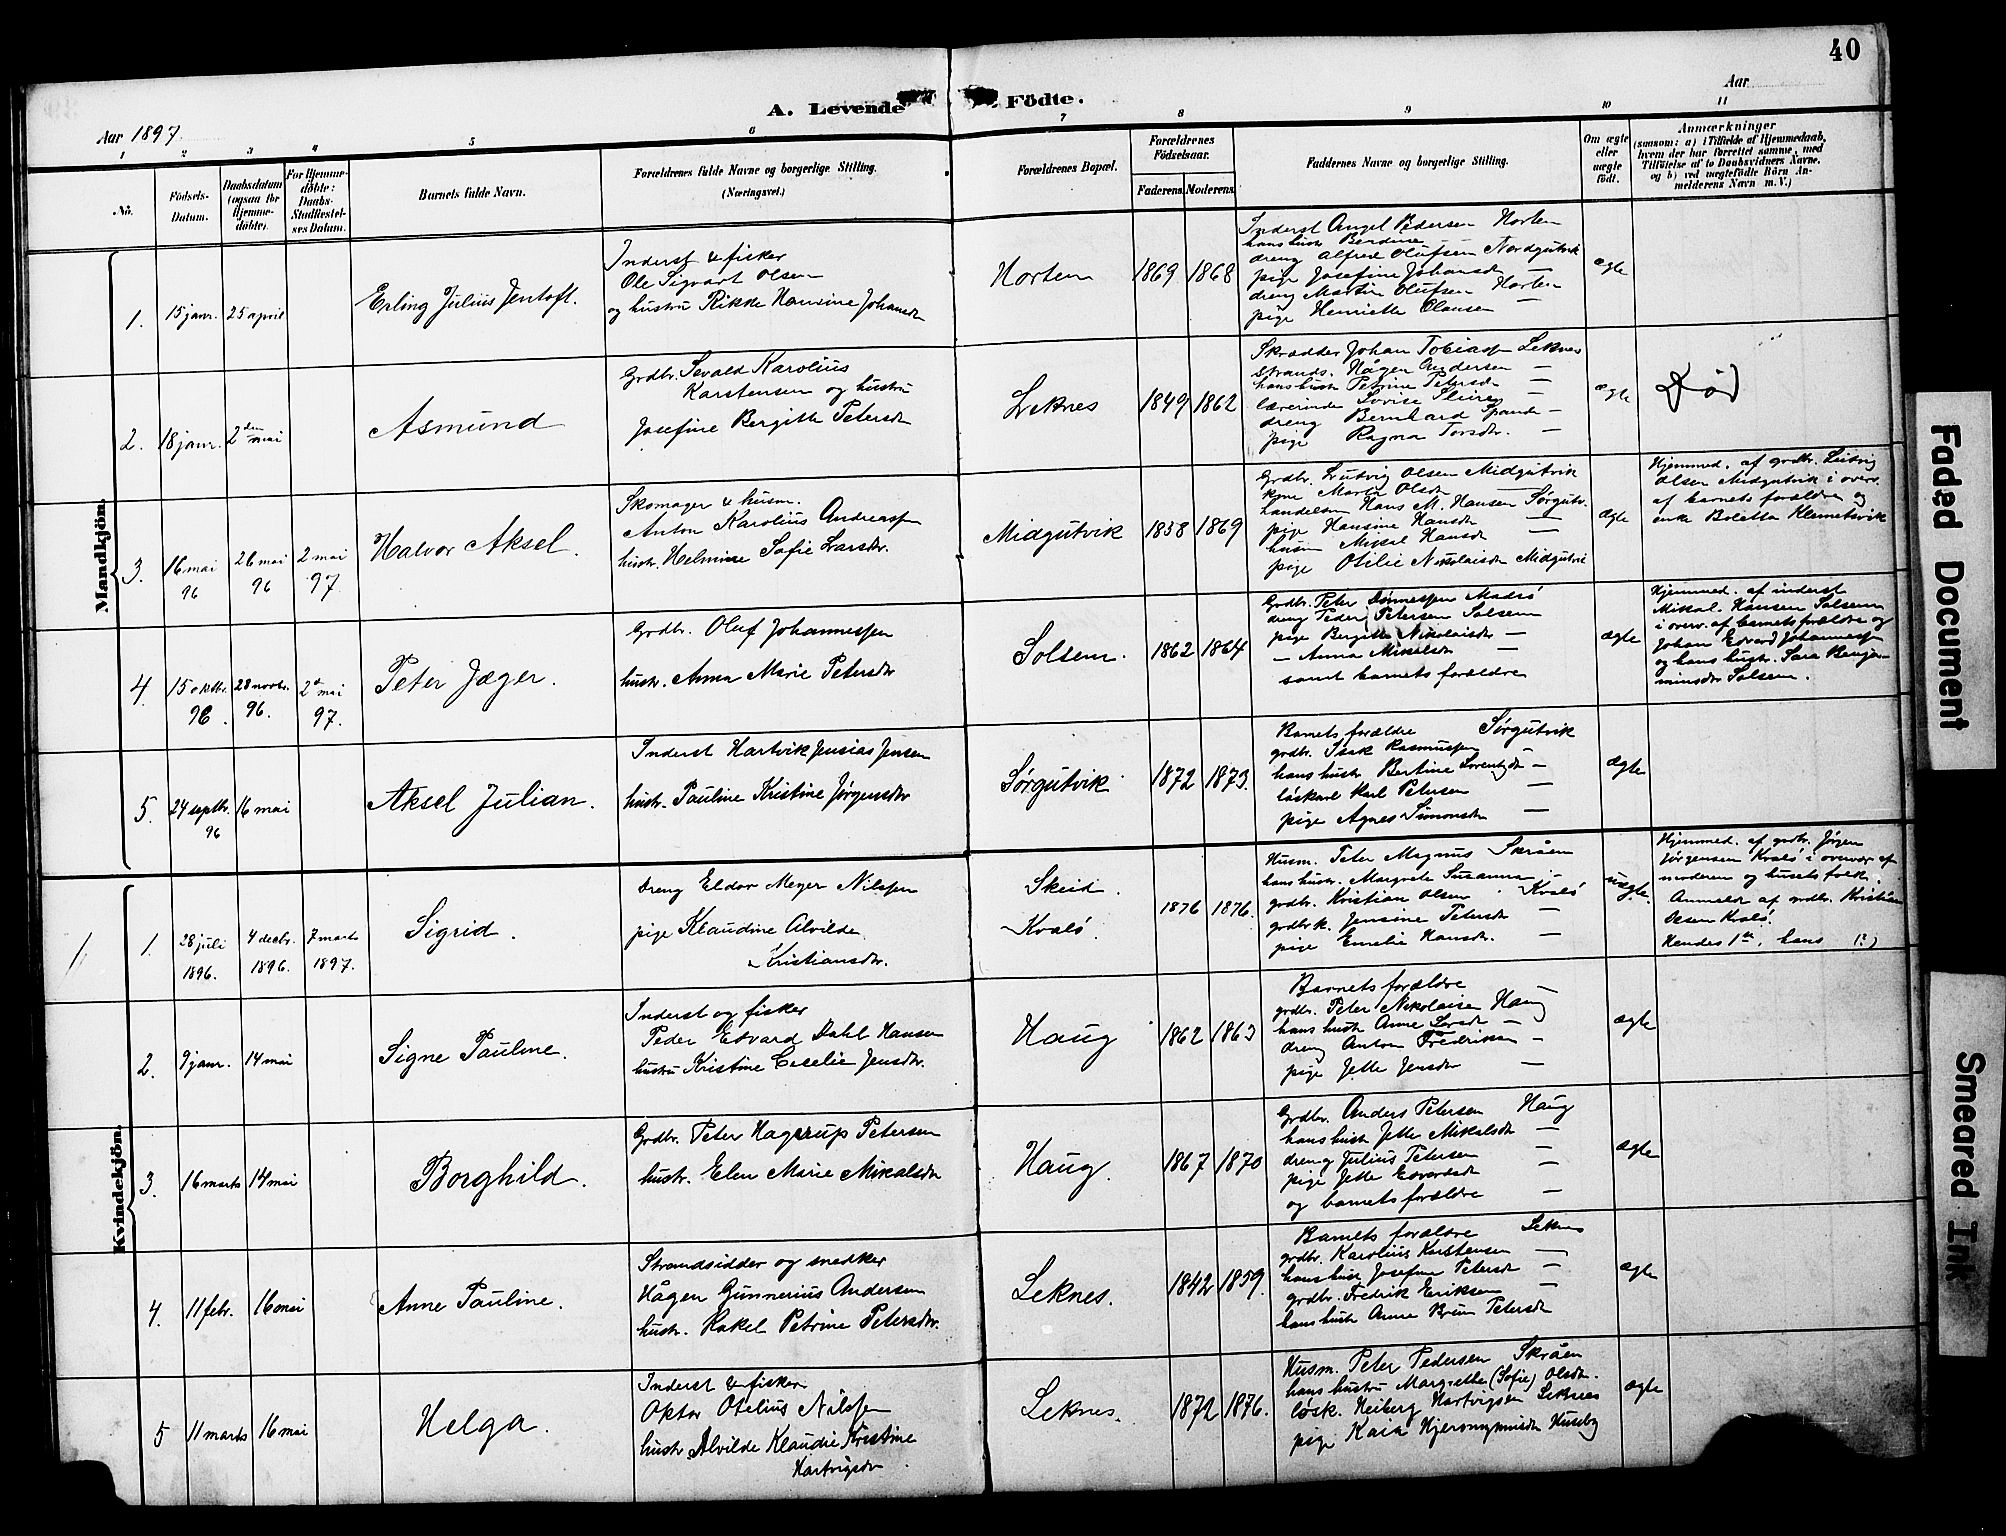 40
A. Levende Födte.
Aar 1897
Aar
1 2 3 4 5 6 7 8 9 10 11
No.
Födsels-Datum.
Daabsdatum (ogsaa for Hjemme-döbte).
For Hjemme-döbte: Daabs-Stadfæstel-ses Datum.
Barnets fulde Navn.
Forældrenes fulde Navne og borgerlige Stilling. (Næringsvei.)
Forældrenes Bopæl.
Forældrenes Födselsaar.
Faderens. Moderens.
Faddernes Navne og borgerlige Stilling.
Om ægte eller uægte födt.
Anmærkninger
(saasom: a) i Tilfælde af Hjemmedaab, hvem der har forrettet samme, med Tilföielse af to Daabsvidners Navne, og b) ved uægtefödte Börn Anmelderens Navn m. V.)
Mandkjön.
1. 15 janr. 25 april
Erling Julius Jentoft.
Inderst & fisker
Ole Sigvart Olsen
og hustru Rikke Hansine Johansdr
Horten
1869 1868
Inderst Angel Pedersen Horten
hans hustr Berdine
dreng Alfred Olufsen Nordgutvik
pige Josefine Johansdr —
dreng Martin Olufsen Horten
pige Henriette Olausen —
ægte
2. 18 janr. 2den mai
Asmund
Grdbr. Sevald Karolius
Karstensen og hustru
Josefine Bergitte Petersdr
Leknes
1849 1862
Skrædder Johan Tobiassen Leknes
strands. Hågen Andersen —
hans hustr Petrine Petersdr —
lærerinde Lovise
dreng Bernhard —
pige Ragna Torsdr. —
ægte
Død
3. 16 mai 96 26 mai 96 2 mai 97
Halvor Aksel.
Skomager & husm.
Anton Karolius Andreassen
hustr. Helmine Sofie Larsdr.
Midgutvik
1858 1869
Grdbr. Ludvig Olsen Midgutvik
kone Marta Olsdr
handelsm Hans M. Hansen Sørgutv.
pige Hansine Hansdr —
husm Mikal Hansdr —
pige Otilie Nikolaisdr Midgutvik
ægte
Hjemmed. af grdbr. Ludvig
Olsen Midgutvik i overv.
af barnets forældre og
enke Boletta Klemetsvik
4. 15 oktbr. 96. 28 novbr. 96. 2d mai 97.
Peter Jæger.
Grdbr. Oluf Johannessen
hustr. Anna Marie Petersdr
Solsem.
1862 1864
Grdbr. Peter Dønnessen Madsö
dreng Peder Petersen Solsem
pige Bergitte Nikolaisdr —
— Anna Mikalsdr —
samt barnets forældre
ægte
Hjemmed. af inderst
Mikal Hansen Solsem
i overv. af barnets forældre og
Johan Edvard Johannessen
og hans hustr. Sara Benja-
minsdr Solsem.
5. 24 septbr. 96 16 mai
Aksel Julian.
Inderst Hartvik Jensias Jensen
hustr. Pauline Kristine Jørgensdr
Sørgutvik
1872 1873.
Barnets forældre Sørgutvik
grdbr. Isak Rasmussen —
hans hustr Bertine Lorentsdr —
löskarl Karl Petersen —
pige Agnes Simonsdr —
ægte
Kvindekjön.
1. 28 juli 1896. 4 decbr. 1896. 7 marts 1897.
Sigrid.
Dreng Eldor Meyer Nilssen
pige Klaudine Alvilde
Kristiansdr.
Skeid.
Kvalö.
1876 1876.
Husm. Peter Magnus Skråen
hans hustr. Margrete Susanna —
grdbr. Kristian Olsen Kvalö
grdbrk. Jensine Petersdr —
pige Emelie Hansdr. —
uægte.
Hjemmed. af grdbr. Jørgen
Jørgensen Kvalö i overvær af
moderen og husets folk.
Anmeldt af grdbr. Kristian
Olsen Kvalö.
Hendes 1ste, hans (?)
2. 9 janr. 14 mai
Signe Pauline.
Inderst og fisker
Peder Edvard Dahl Hansen
hustru Kristine Cecelie Jensdr.
Haug
1862 1863
Barnets forældre —
grdbr. Peter Nikolaisen Haug
hans hustr Anne Larsdr —
dreng Anton Fredriksen —
pige Jette Jensdr —
ægte
3. 16 marts 14 mai
Borghild.
Grdbr. Peter Hagerup Petersen
hustr. Elen Marie Mikalsdr
Haug.
1867 1870
Grdbr. Anders Petersen Haug
hans hustr Jette Mikalsdr —
dreng Julius Petersen —
pige Jette Edvardsdr —
og barnets forældre —
ægte
4. 11 febr. 16 mai
Anne Pauline.
Strandsidder og snedker
Hågen Gunnerius Andersen
hustr. Rakel Petrine Petersdr.
Leknes.
1842 1859.
Barnets forældre Leknes
grdbr. Karolius Karstensen —
hans hustr Josefine Petersdr —
grdbr. Fredrik Eriksen —
hans hustr Anne Brun Petersdr
ægte
5 11 marts 16 mai
Helga.
Inderst & fisker
Oktav Otelius Nilssen
hustr. Alvilde Klaudie Kristine
Hartvigsdr.
Leknes.
1872 1876.
Husm. Peter Pedersen Skråen
hans hustru Margrethe (Sofie) Olsdr.
lösk. Heiberg Hartvigsen Leknes
pige Kaia Hjeronymusdr Huseby
ægte
Faded Document
Smeared Ink